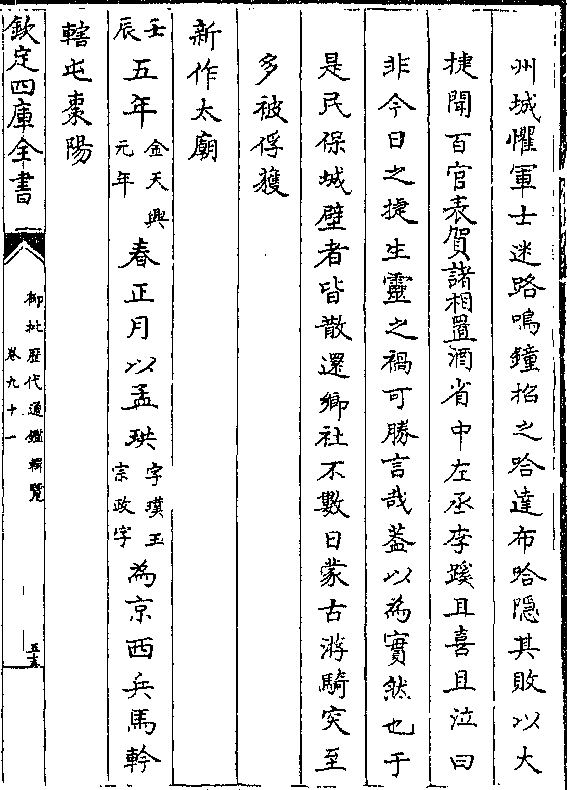 州城懼軍士迷路鳴鐘招之哈達布哈隱其敗以大
捷聞百官表賀諸相置酒省中左丞李蹊且喜且泣曰
非今日之捷生靈之禍可勝言哉葢以為實然也于
是民保城壁者皆散還鄉社不數日蒙古游騎突至
多被俘獲
新作太廟
壬辰五年金天興元年春正月以孟珙字璞玉宗政子為京西兵馬鈐
轄屯棗陽
欽定四庫全書
御批歷代通鑑輯覽
卷九十一